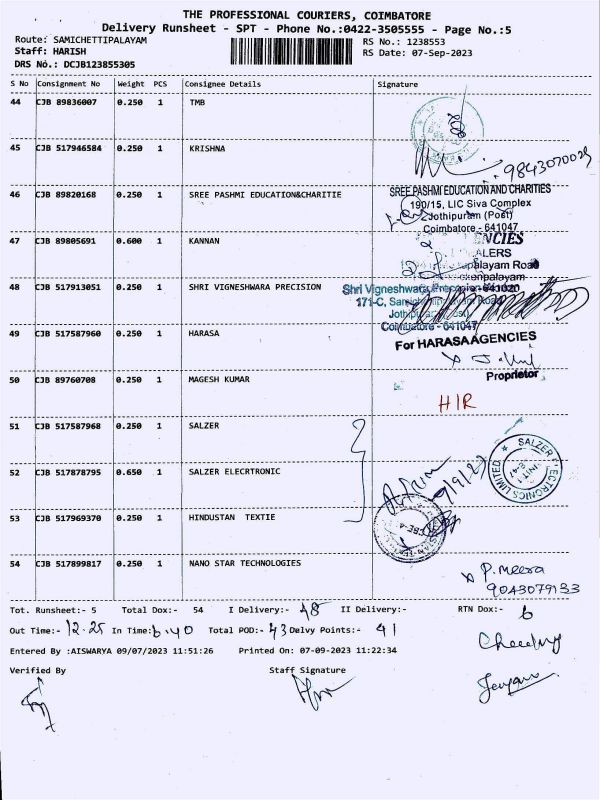 THE PROFESSIONAL COURIERS, COIMBATORE
Delivery Runsheet - SPT - Phone No.:0422-3505555 - Page No.:5
Route: SAMICHETTIPALAYAM
RS No.: 1238553
Staff: HARISH
RS Date: 07-Sep-2023
DRS No.: DCJB123855305
S No Consignment No Weight PCS Consignee Details Signature
44 CJB 89836007 0.250 1 TMB
45 CJB 517946584 0.250 1 KRISHNA
9843070029
46 CJB 89820168 0.250 1 SREE PASHMI EDUCATION&CHARITIE
SREE PASHMI EDUCATION AND CHARITIES
190/15, LIC Siva Complex
Jothipuram (Post)
Coimbatore - 641047
47 CJB 89805691 0.600 1 KANNAN
ENCIES
ALERS
palayam Road
48 CJB 517913051 0.250 1 SHRI VIGNESHWARA PRECISION
Shri Vigneshwara
171-C,
Coimbatore - 641047
49 CJB 517587960 0.250 1 HARASA
For HARASA AGENCIES
Proprietor
50 CJB 89760708 0.250 1 MAGESH KUMAR
HIR
51 CJB 517587968 0.250 1 SALZER
SALZER ELECTRONICS LIMITED
UNIT 1
52 CJB 517878795 0.650 1 SALZER ELECRTRONIC
53 CJB 517969370 0.250 1 HINDUSTAN TEXTIE
CBE-4
54 CJB 517899817 0.250 1 NANO STAR TECHNOLOGIES
P. Meera
9043079133
Tot. Runsheet:- 5 Total Dox:- 54 I Delivery:- 48 II Delivery:- RTN Dox:- 6
Out Time:- 12.25 In Time:- 6.40 Total POD:- 43 Delvy Points:- 41
Entered By :AISWARYA 09/07/2023 11:51:26 Printed On: 07-09-2023 11:22:34
Verified By Staff Signature